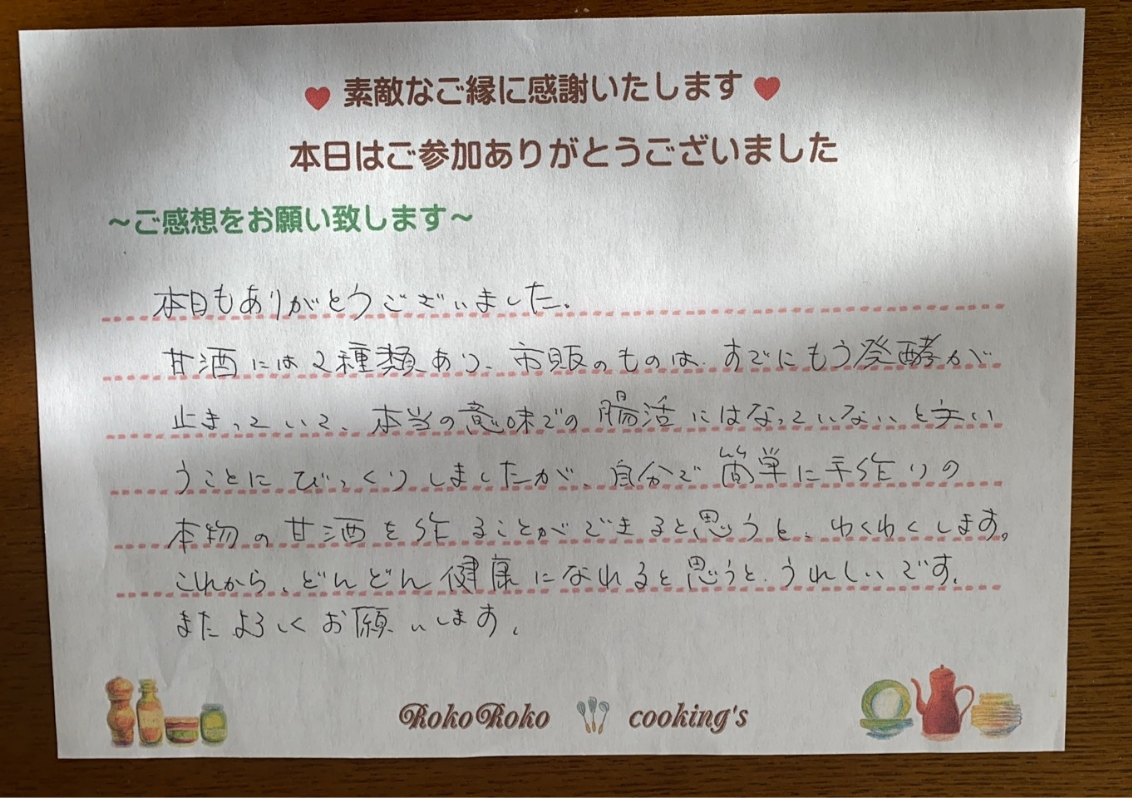 素敵なご縁に感謝いたします
本日はご参加ありがとうございました
~ご感想をお願い致します~
本日もありがとうございました。
甘酒には2種類あり、市販のものは、すでにもう発酵が
止まっていて、本当の意味での腸活にはなっていないと失い
うことにびっくりしましたが、自分で簡単に手作りの
本物の甘酒を作ることができると思うと、わくわくします。
これから、どんどん健康になれると思うと、うれしいです。
またよろしくお願いします。
RokoRoko cooking's